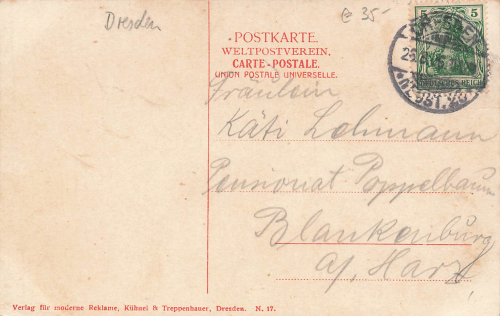 Dresden
@ 35-
POSTKARTE.
WELTPOSTVEREIN.
CARTE-POSTALE.
UNION POSTALE UNIVERSELLE.
5
DEUTSCHES REICH
Fräulein
Käti Lehmann
Pensionat Poppelbaum
Blankenburg
a/ Harz
Verlag für moderne Reklame, Kühnel & Treppenhauer, Dresden. N. 17.